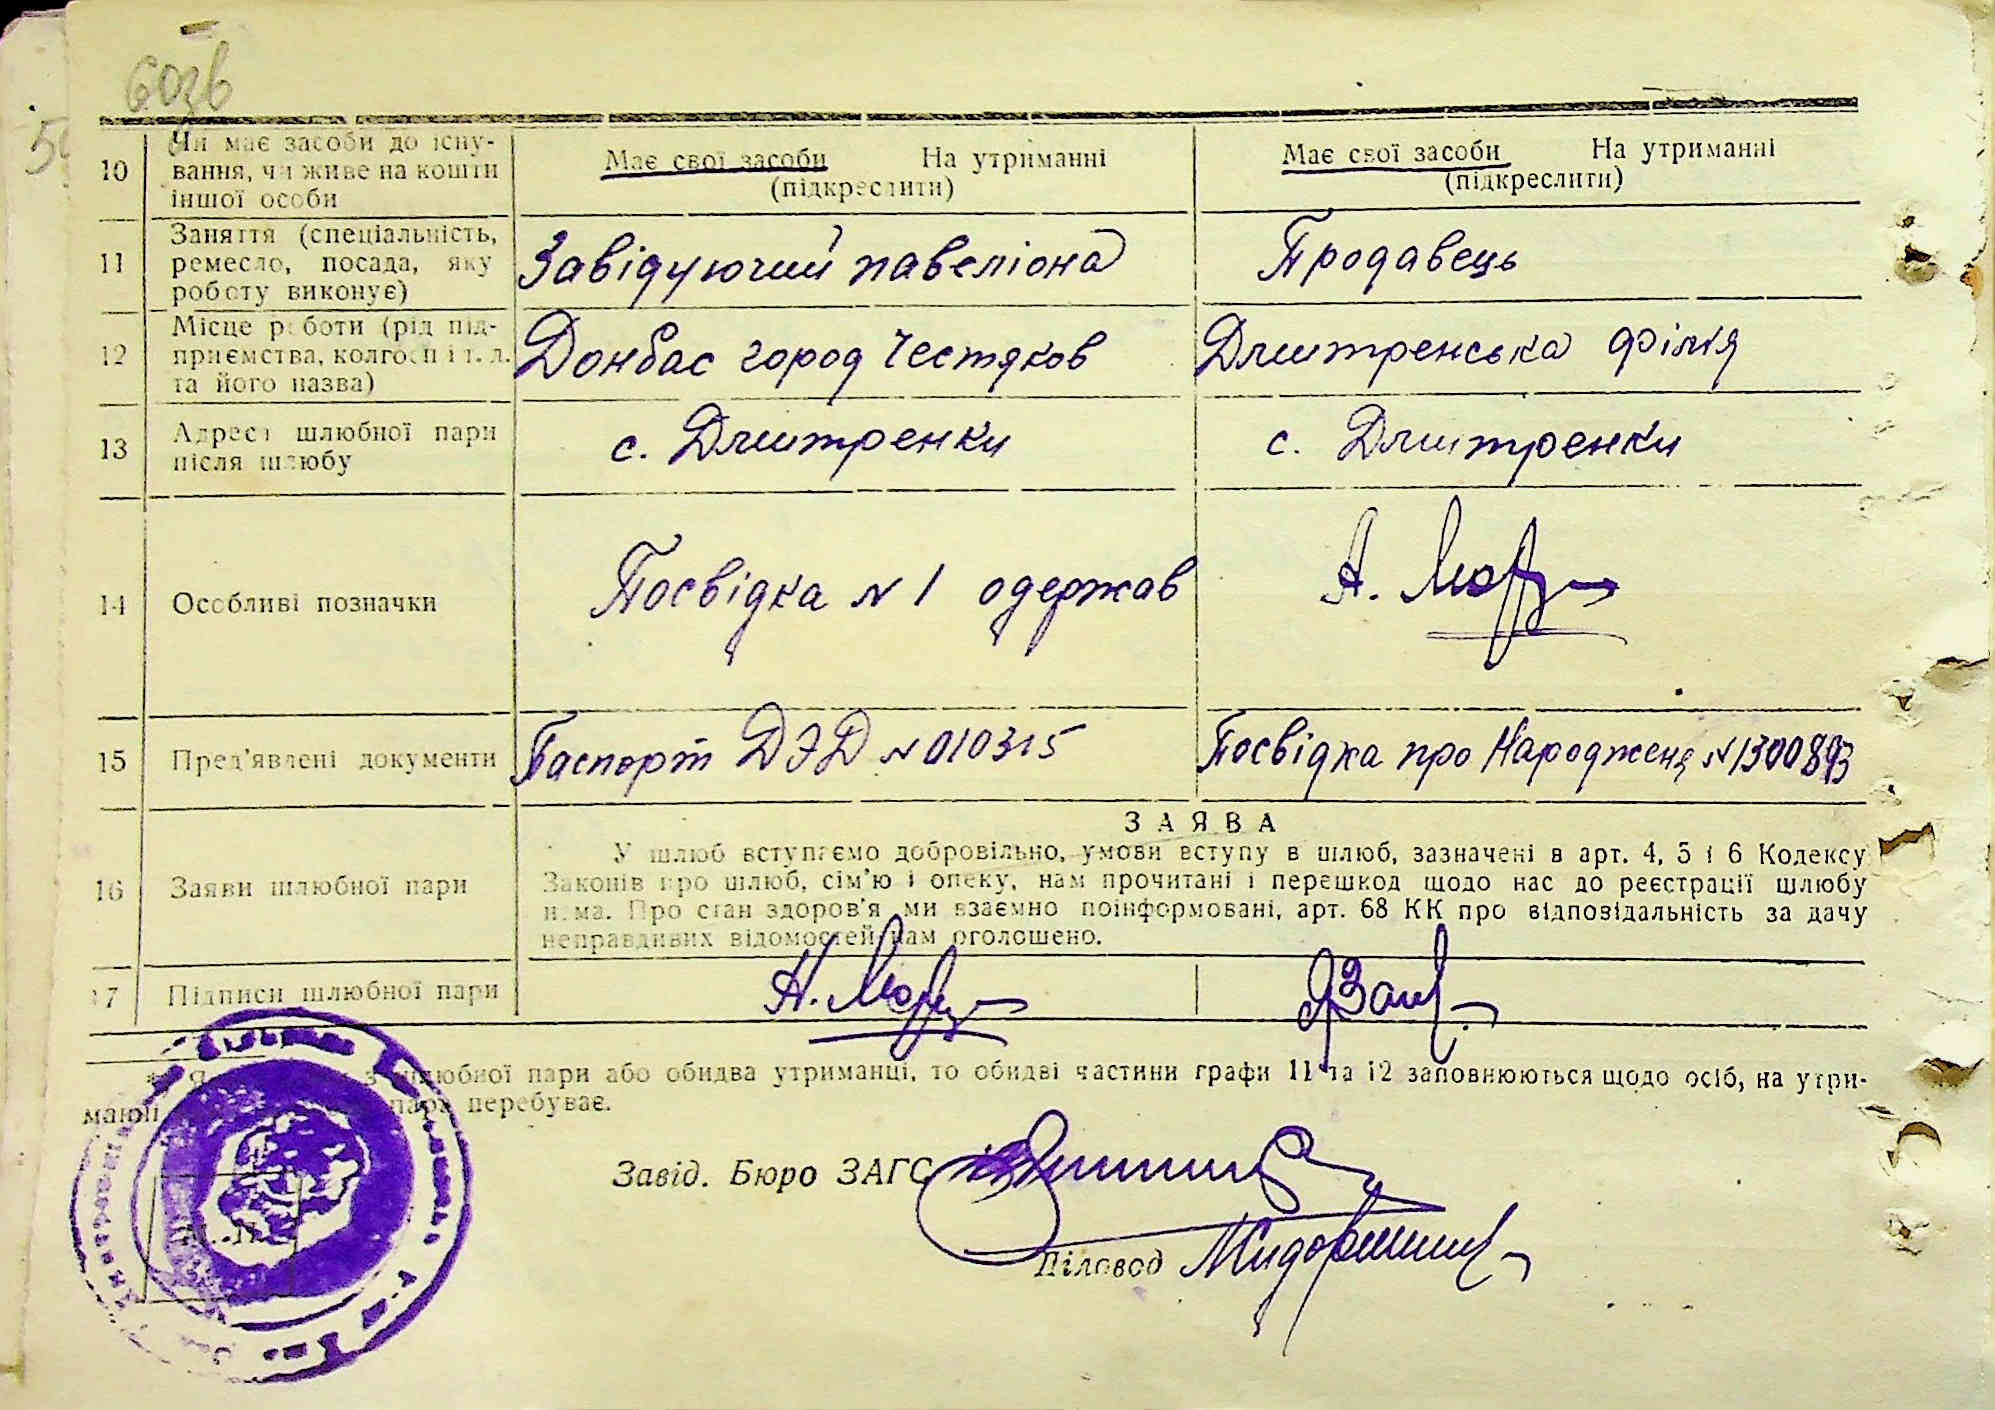 603в
10 Чи має засоби до існу-
вання, чи живе на кошти
іншої особи
Має свої засоби На утриманні
(підкреслити)
Має свої засоби На утриманні
(підкреслити)
11 Заняття (спеціальність,
ремесло, посада, яку
роботу виконує)
Завідуючий павеліона
Продавець
12 Місце роботи (рід під-
приємства, колгосп і т. д.
та його назва)
Донбас город Честяков
Дмитренська Філія
13 Адреса шлюбної пари
після шлюбу
с. Дмитренки
с. Дмитренки
14 Особливі позначки
Посвідка № 1 одержав
А.
15 Пред'явлені документи
Паспорт ДЭД № 010315
Посвідка про Народженя № 1300893
ЗАЯВА
16 Заяви шлюбної пари
У шлюб вступаємо добровільно, умови вступу в шлюб, зазначені в арт. 4, 5 і 6 Кодексу
Законів про шлюб, сім'ю і опеку, нам прочитані і перешкод щодо нас до реєстрації шлюбу
нема. Про стан здоров'я ми взаємно поінформовані, арт. 68 КК про відповідальність за дачу
неправдивих відомостей нам оголошено.
17 Підписи шлюбної пари
шлюбної пари або обидва утриманці, то обидві частини графи 11 та 12 заповнюються щодо осіб, на утри-
манні пара перебуває.
Завід. Бюро ЗАГС
Діловод